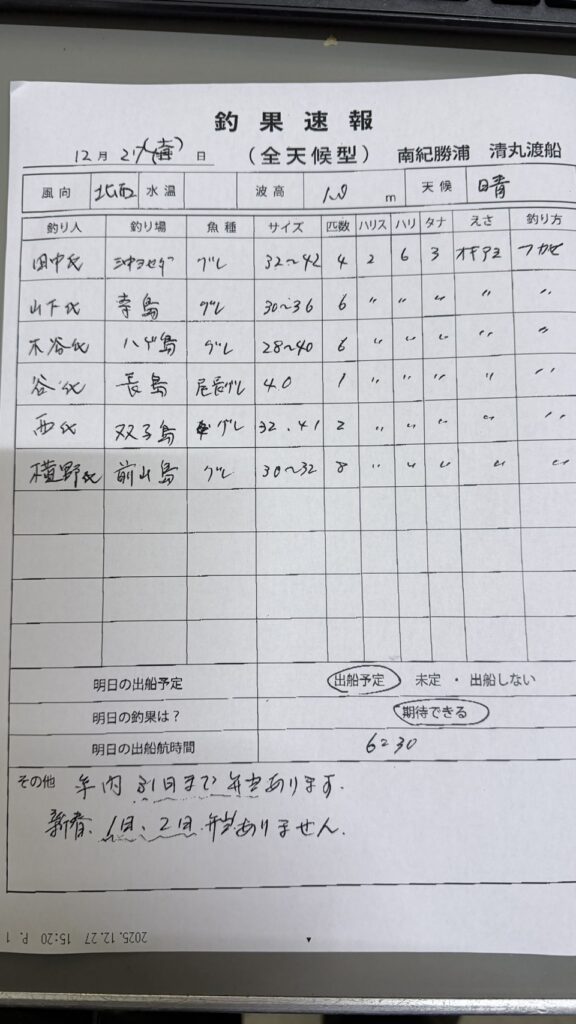 釣果速報
12月27(土)日 (全天候型) 南紀勝浦 清丸渡船
風向 北西 水温 波高 1.0 m 天候 晴
釣り人 釣り場 魚種 サイズ 匹数 ハリス ハリ タナ えさ 釣り方
田中氏 グレ 32〜42 4 2 6 3 オキアミ フカセ
山下氏 寺島 グレ 30〜36 6 〃 〃 〃 〃 〃
木谷氏 ハゲ島 グレ 28〜40 6 〃 〃 〃 〃 〃
谷氏 長島 尾長グレ 40 1 〃 〃 〃 〃 〃
西氏 双子島 グレ 32.41 2 〃 〃 〃 〃 〃
横野氏 前山島 グレ 30〜32 8 〃 〃 〃 〃 〃
明日の出船予定 出船予定 未定・出船しない
明日の釣果は? 期待できる
明日の出船航時間 6=30
その他 年内 31日まで 弁当あります.
新春、1日、2日 弁当ありません.
2025.12.27 15:20 P. 1